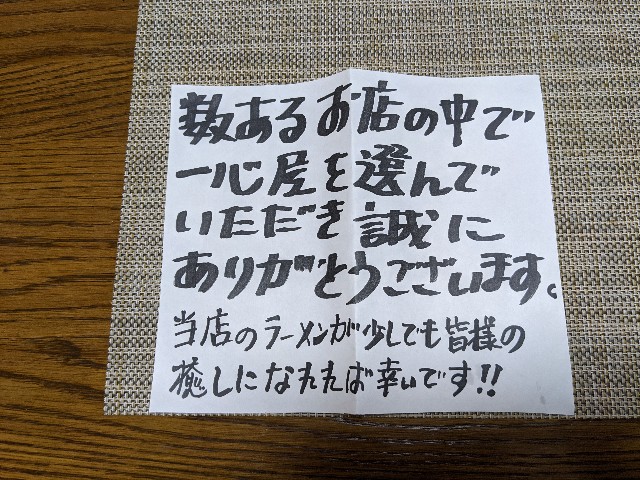 数あるお店の中で
一心屋を選んで
いただき誠に
ありがとうございます。
当店のラーメンが少しでも皆様の
癒しになれれば幸いです!!